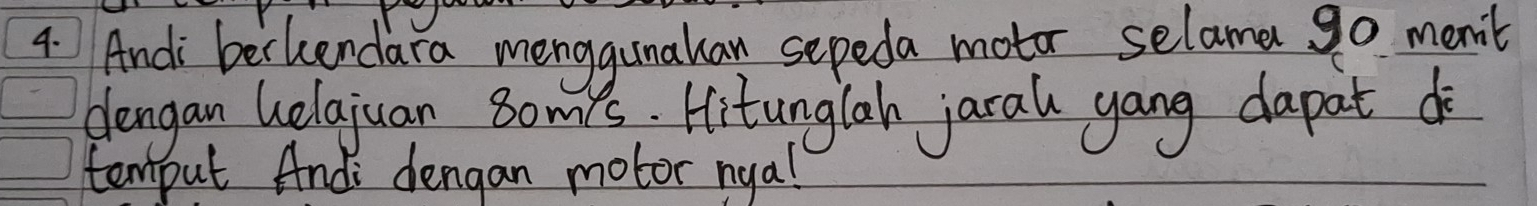 4. Andi berkendara menggunakan sepeda motor selama 90 menit
dengan kelajuan 80 m/s. Hitunglah jarak yang dapat di
temput Andi dengan motor nya!